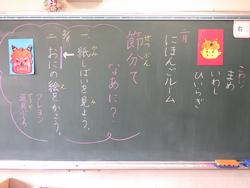 右
こわい
まめ
いわし
ひいらぎ
にほんごルーム
せつぶん
節分て
なあに？
一、紙しばいを見よう。
二、おにの絵をかこう。
クレヨン